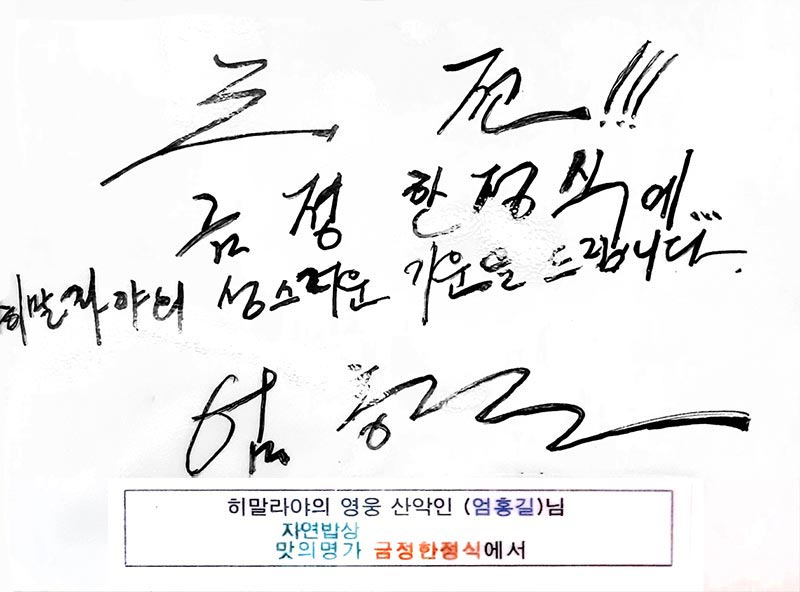 도전!!!
금정 한정식에...
히말라야의 성스러운 기운을 드립니다.
엄홍길
히말라야의 영웅 산악인 (엄홍길)님
자연밥상
맛의명가 금정한정식에서